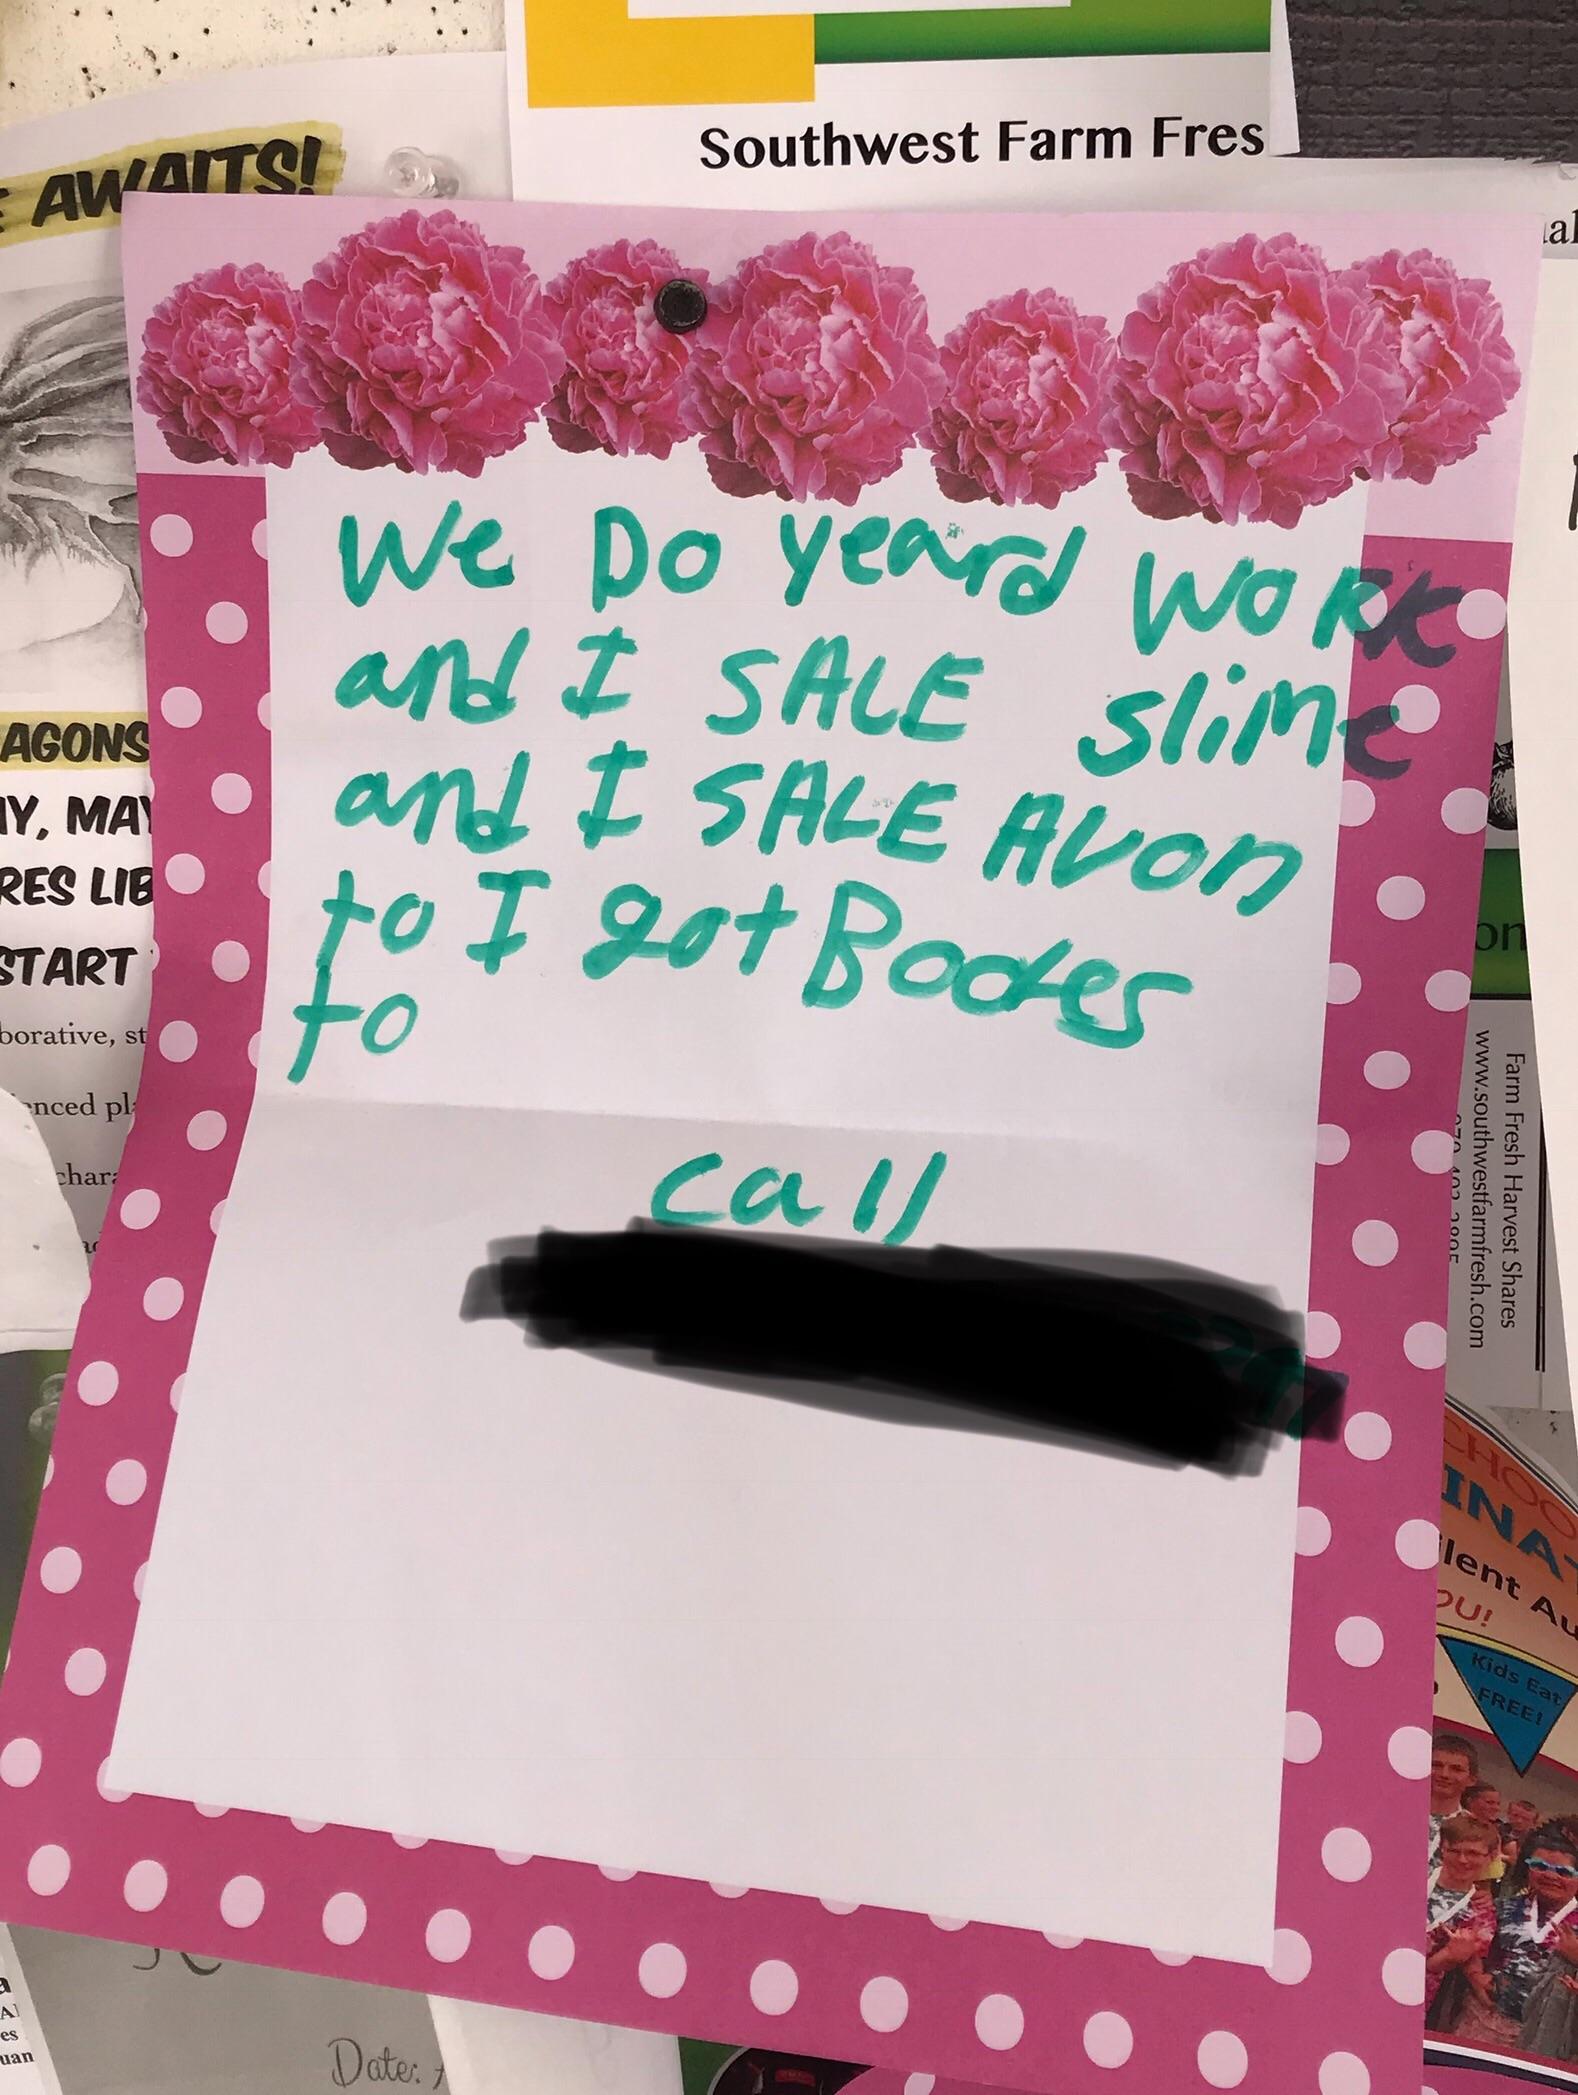 Southwest Farm Fres
AWAITS!
We Do yeard WORK
and I SALE slime
and I SALE AVON
to I got Bodes
to
call
AGONS
AY, MAY
RES LIB
START
borative, st
enced pla
chara
on
Farm Fresh Harvest Shares
www.southwestfarmfresh.com
CHOO
INA
ilent Au
OU!
Kids Eat
FREE!
Date: